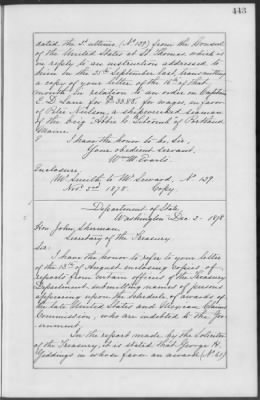 443
dated the 3d ultimo (No 139) from the Consul
of the United States at St Thomas addressed
in reply to an instruction addressed to
him on the 25th September last, transmitting
a copy of your letter of the 16th of that
month in relation to an order on Captain
E. D. Lane for $33.85 for wages, in favor
of Peter Neilson, a shipwrecked seaman
of the brig Abbie
Maine.
I have the honor to be, Sir,
Your obedient servant,
Wm M. Evarts.
Enclosure,
Mr Smith to Mr Seward, No 139
Novr 3rd 1878. Copy.
Department of State,
Washington Dec 2 - 1878
Hon John Sherman,
Secretary of the Treasury.
Sir:
I have the honor to refer to your letter
of the 13th of August enclosing copies of
reports from certain officers of the Treasury
Department submitting names of persons
appearing upon the schedule of awards of
the late United States and Mexican Claims
Commission, who are indebted to the Gov-
ernment.
In the report made by the Solicitor
of the Treasury, it is stated that George H.
Giddings in whose favor an award (No 21)